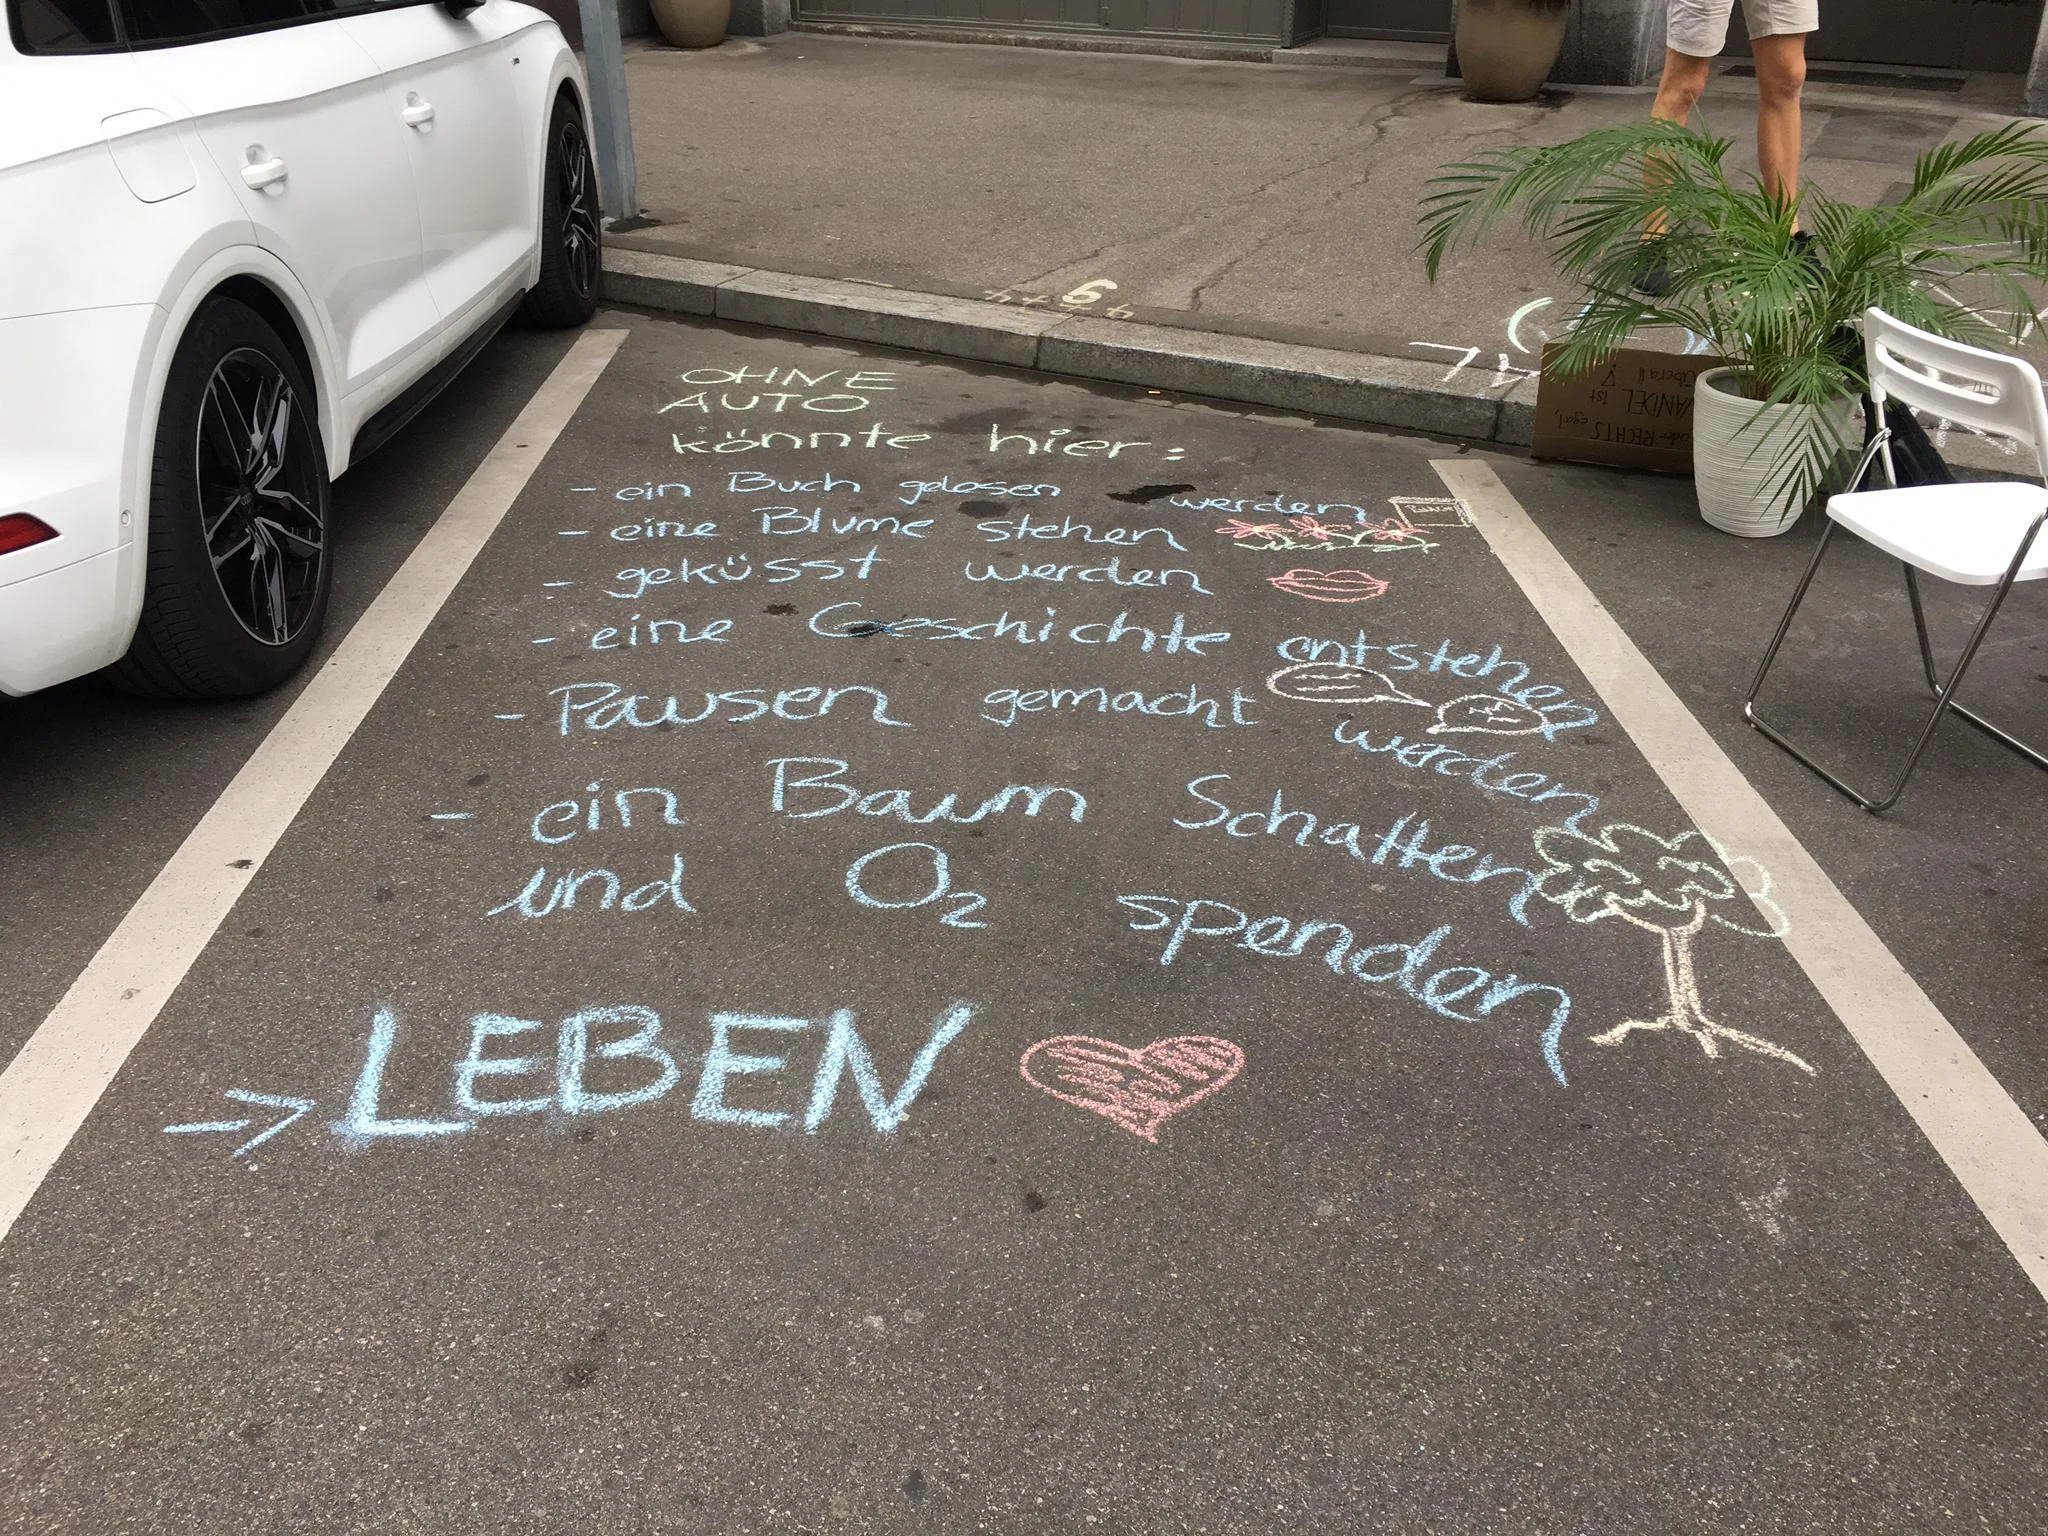 OHNE
AUTO
könnte hier:
- ein Buch gelesen werden
- eine Blume stehen
- geküsst werden
- eine Geschichte entstehen
- Pausen gemacht werden
- ein Baum Schatten
und O₂ spenden
-> LEBEN
6
oder RECHTS egal,
WANDEL ist
überall